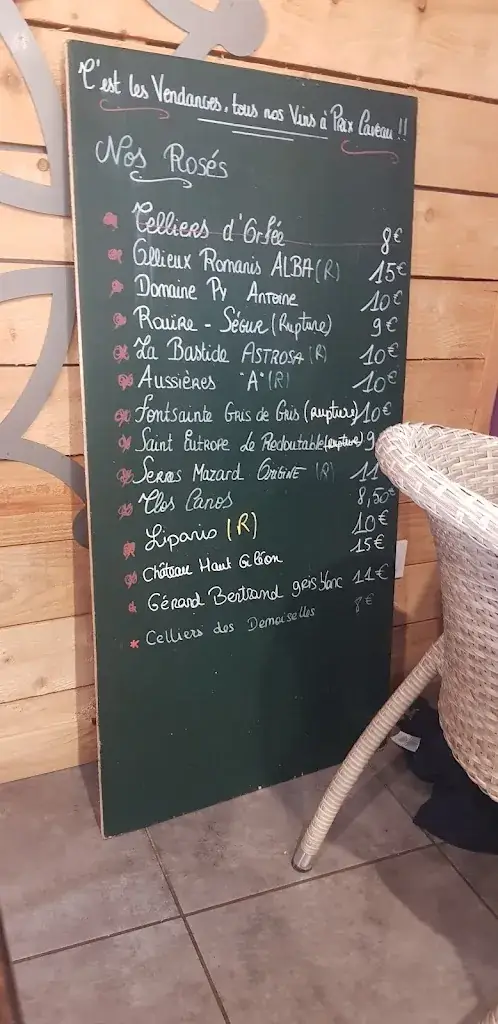 C'est les Vendanges, tous nos Vins à Prix Caveau !!
Nos Rosés
Celliers d'Orfée 8€
Ollieux Romanis ALBA (R) 15€
Domaine Py Antoine 10€
Rouïre - Ségur (Rupture) 9€
La Bastide ASTROSA (R) 10€
Aussières "A" (R) 10€
Fontsainte Gris de Gris (rupture) 10€
Saint Eutrope Le Redoutable (rupture) 9
Serres Mazard ORIGINE (R) 11
Clos Canos 8,50€
Liparis (R) 10€
Château Haut Gléon 15€
Gérard Bertrand gris blanc 11€
* Celliers des Demoiselles 8€